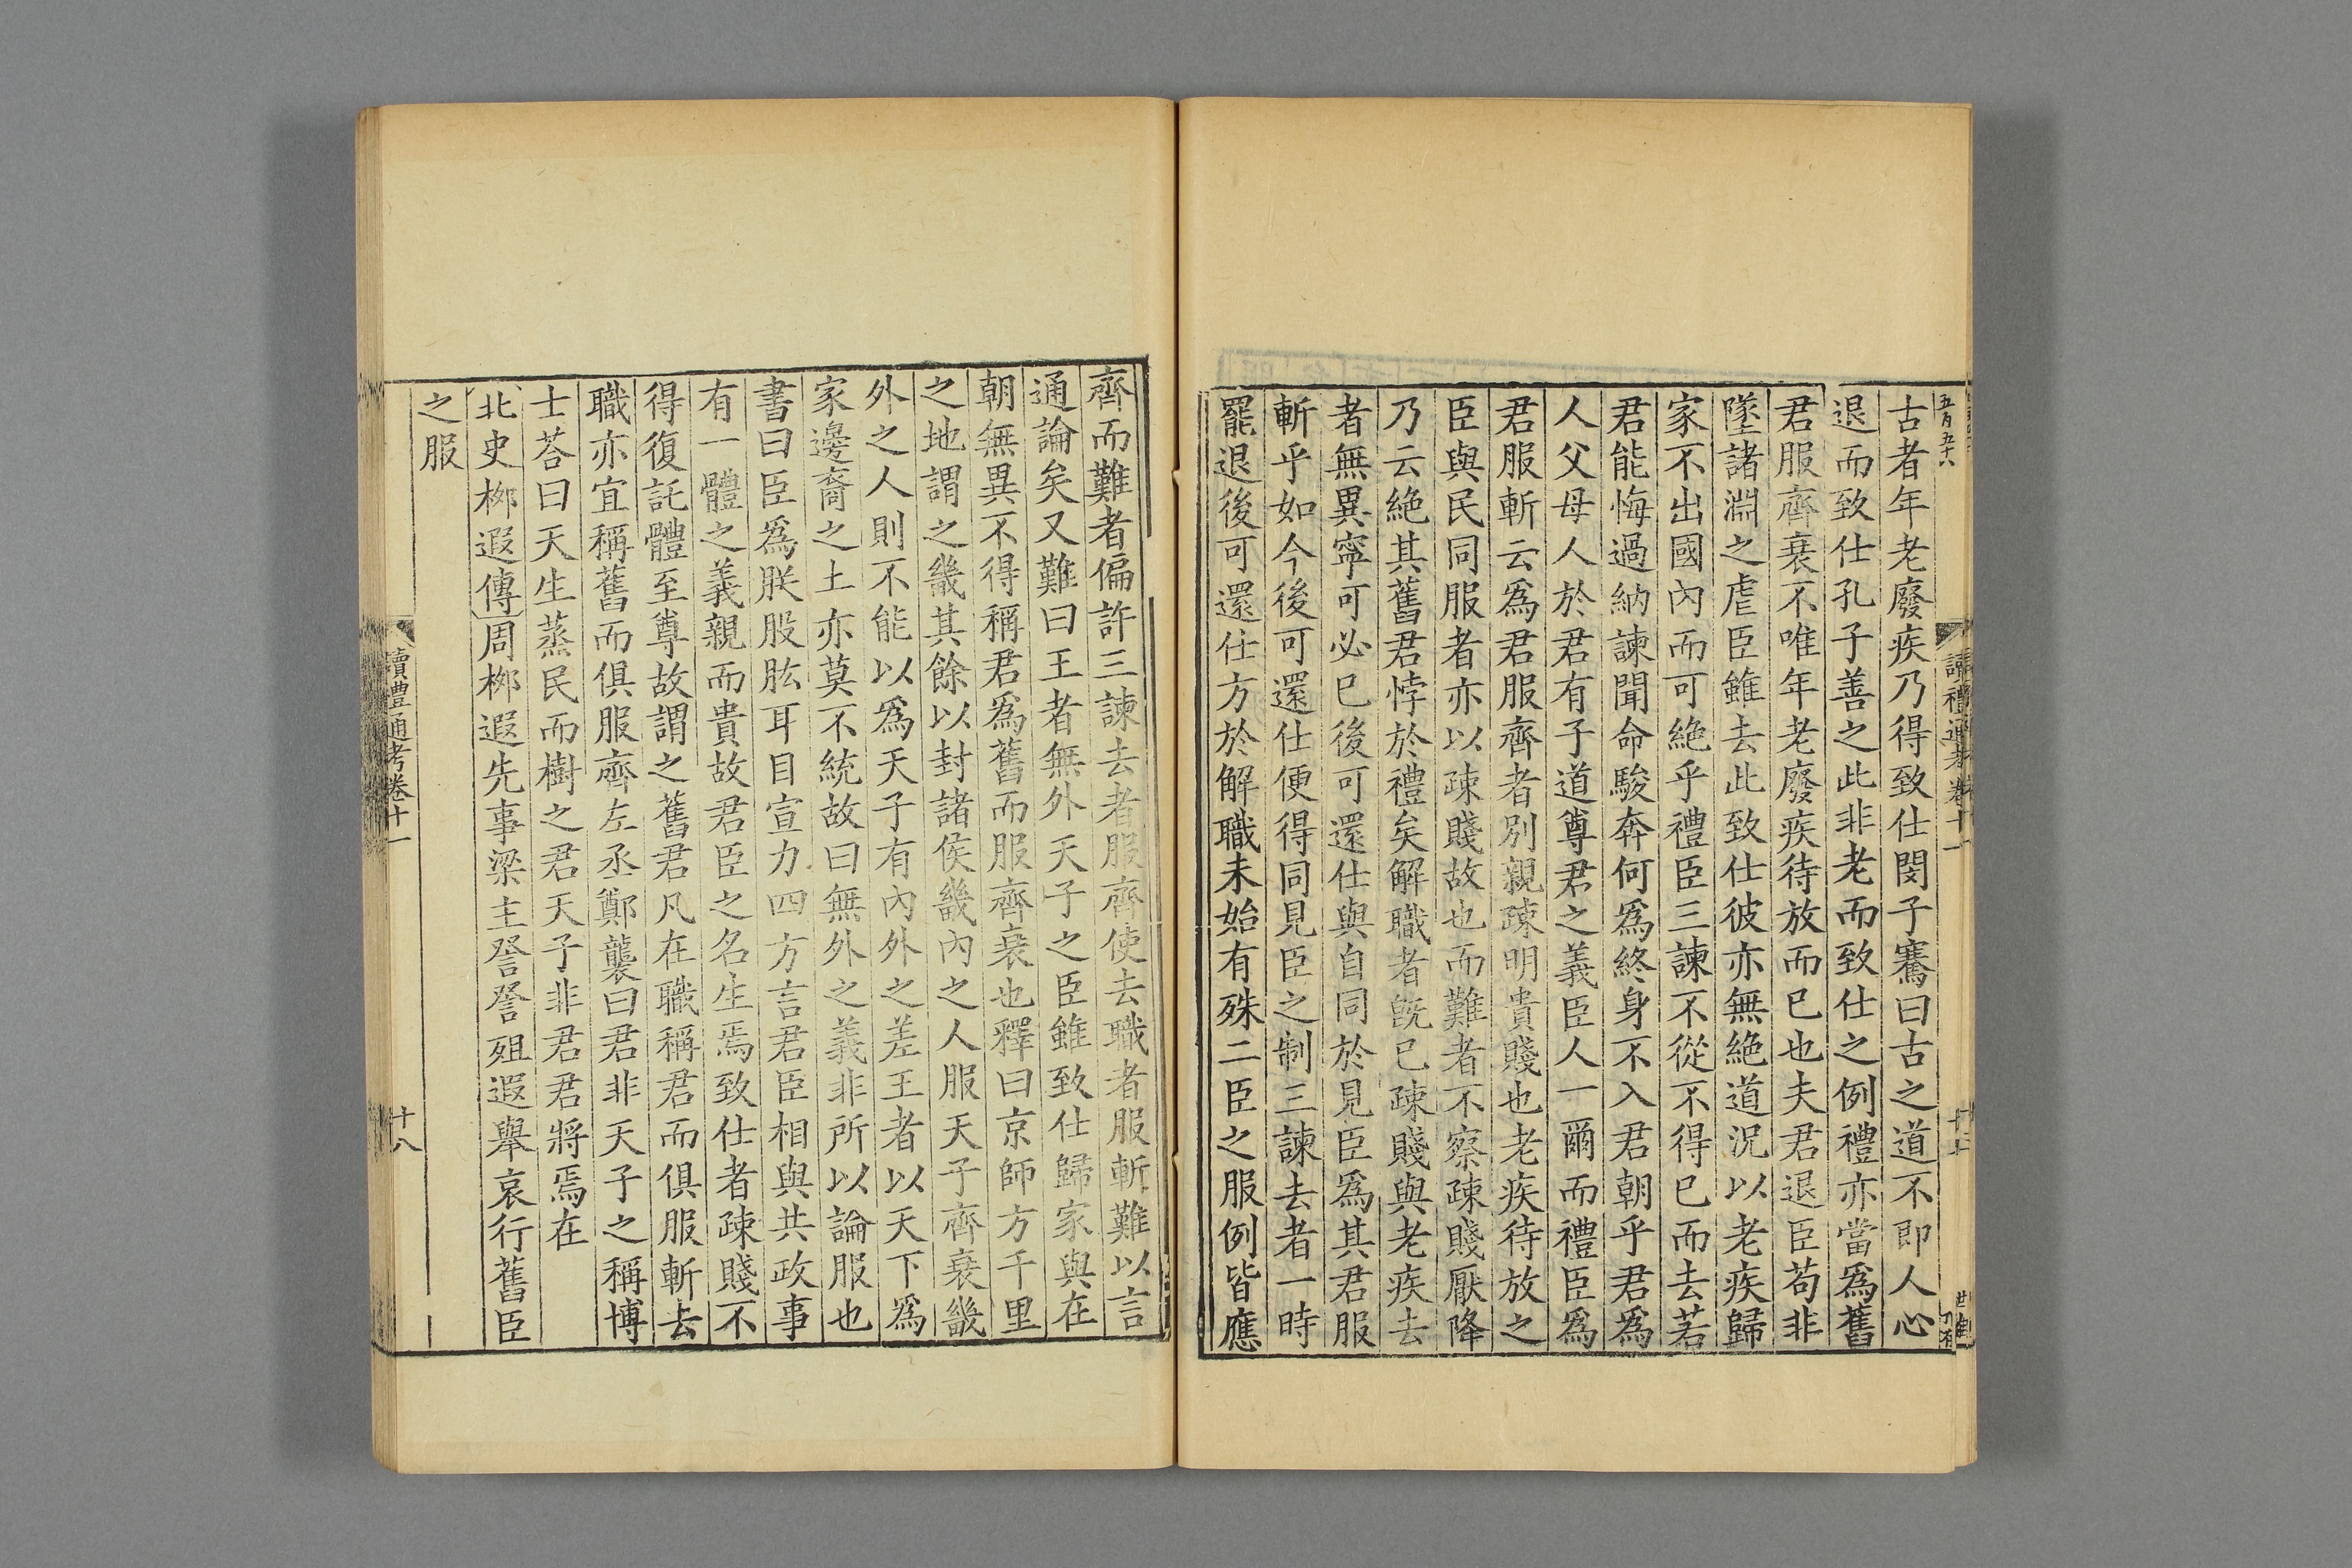 五百五十八
讀禮通考卷十一
古者年老廢疾乃得致仕閔子騫曰古之道不即人心
退而致仕孔子善之此非老而致仕之例禮亦當爲舊
君服齊衰不唯年老廢疾待放而已也夫君退臣苟非
墜諸淵之虐臣雖去此致仕彼亦無絶道況以老疾歸
家不出國內而可絶乎禮臣三諫不從不得已而去若
君能悔過納諫聞命駿奔何爲終身不入君朝乎君爲
人父母人於君有子道尊君之義臣人一爾而禮臣爲
君服斬云爲君服齊者別親疎明貴賤也老疾待放之
臣與民同服者亦以疎賤故也而難者不察疎賤厭降
乃云絶其舊君悖於禮矣解職者旣已疎賤與老疾去
者無異寧可必已後可還仕與自同於見臣爲其君服
斬乎如今後可還仕便得同見臣之制三諫去者一時
罷退後可還仕方於解職未始有殊二臣之服例皆應
齊而難者偏許三諫去者服齊使去職者服斬難以言
通論矣又難曰王者無外天子之臣雖致仕歸家與在
朝無異不得稱君爲舊而服齊衰也釋曰京師方千里
之地謂之畿其餘以封諸侯畿內之人服天子齊衰畿
外之人則不能以爲天子有內外之差王者以天下爲
家邊裔之土亦莫不統故曰無外之義非所以論服也
書曰臣爲朕股肱耳目宣力四方言君臣相與共政事
有一體之義親而貴故君臣之名生焉致仕者疎賤不
得復託體至尊故謂之舊君凡在職稱君而俱服斬去
職亦宜稱舊而俱服齊左丞鄭襲曰君非天子之稱博
士荅曰天生蒸民而樹之君天子非君君將焉在
北史栁遐傳周栁遐先事梁主詧詧殂遐舉哀行舊臣
之服
讀禮通考卷十一
十八